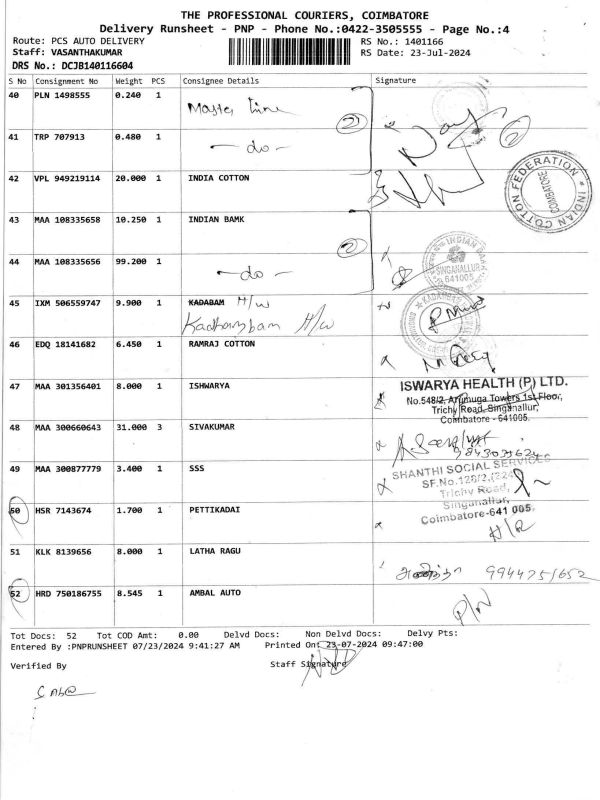 THE PROFESSIONAL COURIERS, COIMBATORE
Delivery Runsheet - PNP - Phone No.:0422-3505555 - Page No.:4
Route: PCS AUTO DELIVERY
RS No.: 1401166
Staff: VASANTHAKUMAR
RS Date: 23-Jul-2024
DRS No.: DCJB140116604
S No Consignment No Weight PCS Consignee Details Signature
40 PLN 1498555 0.240 1
2
2
41 TRP 707913 0.480 1 - do -
42 VPL 949219114 20.000 1 INDIA COTTON
INDIAN COTTON FEDERATION
COIMBATORE
43 MAA 108335658 10.250 1 INDIAN BAMK
2
INDIAN BANK
SINGANALLUR
641005
44 MAA 108335656 99.200 1 - do -
45 IXM 506559747 9.900 1 KADABAM H/W
Kadhambam H/W
46 EDQ 18141682 6.450 1 RAMRAJ COTTON
47 MAA 301356401 8.000 1 ISHWARYA
ISWARYA HEALTH (P) LTD.
No.548/2, Arumuga Towers 1st Floor,
Trichy Road, Singanallur,
Coimbatore - 641005.
48 MAA 300660643 31.000 3 SIVAKUMAR
49 MAA 300877779 3.400 1 SSS
SHANTHI SOCIAL SERVICES
Trichy Road,
Singanallur,
Coimbatore-641 005.
50 HSR 7143674 1.700 1 PETTIKADAI
H/R
51 KLK 8139656 8.000 1 LATHA RAGU
9944751652
52 HRD 750186755 8.545 1 AMBAL AUTO
P/N
Tot Docs: 52 Tot COD Amt: 0.00 Delvd Docs: Non Delvd Docs: Delvy Pts:
Entered By :PNPRUNSHEET 07/23/2024 9:41:27 AM Printed On: 23-07-2024 09:47:00
Verified By Staff Signature